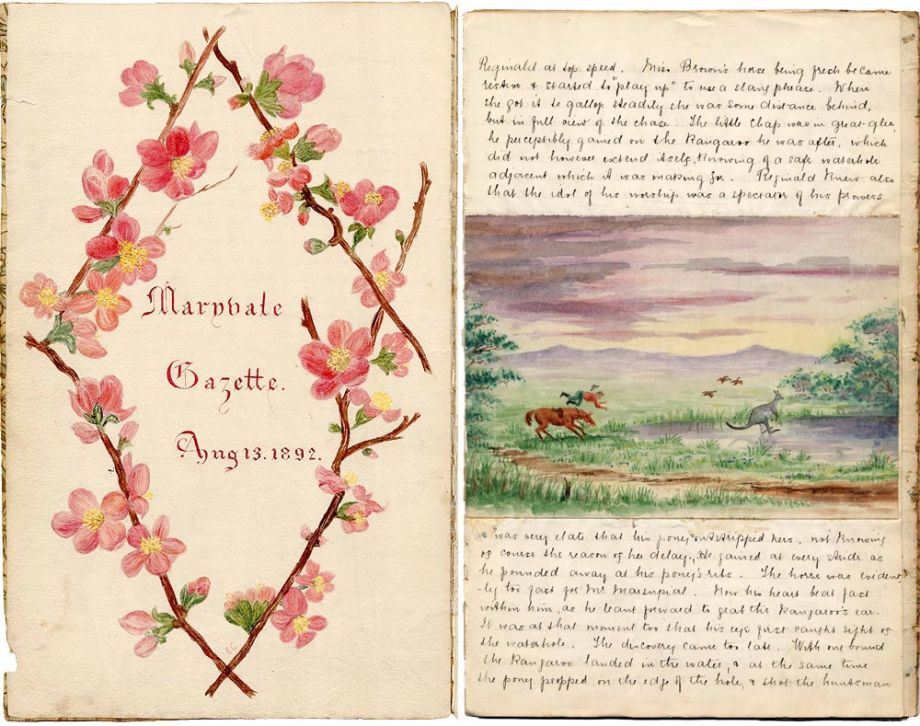 Maryvale
Gazette.
Aug 13. 1892.
Reginald at top speed. Miss Brown's horse being fresh became
restive & started to "play up" to use a slang phrase. When
she got it to gallop steadily she was some distance behind,
but in full view of the chase. The little chap was in great glee,
he perceptibly gained on the Kangaroo he was after, which
did not however extend itself, Knowing of a safe waterhole
adjacent which it was making for. Reginald Knew also
that the idol of his worship was a spectator of his prowess
& was very elate that his pony outstripped hers, not Knowing
of course the reason of her delay. He gained at every stride as
he pounded away at his pony's ribs. The horse was evident
-ly too fast for Mr Marsupial. Now his heart beat fast
within him, as he leant forward to grab the Kangaroo's ear.
It was at that moment too that his eye first caught sight of
the waterhole. The discovery came too late. With one bound
the Kangaroo landed in the water, & at the same time
the pony propped on the edge of the hole, & shot the huntsman